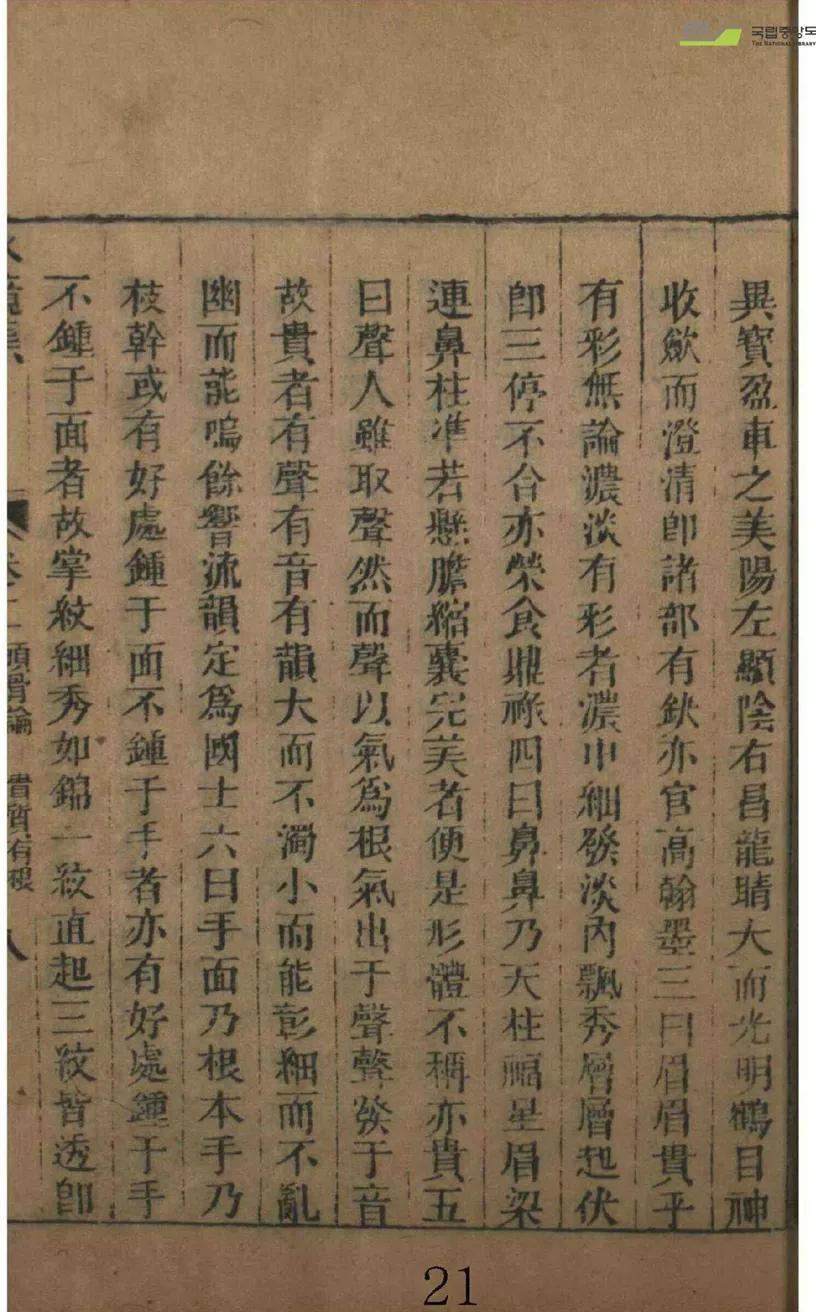 국립중앙도
THE NATIONAL LIBRARY
異寶盈車之美陽左顯陰右昌龍睛大而光明鶴目神
收斂而澄清卽諸部有缺亦官高翰墨三曰眉眉貴乎
有彩無論濃淡有彩者濃中細發淡內飄秀層層起伏
卽三停不合亦榮食鼎祿四曰鼻鼻乃天柱福星眉梁
連鼻柱準若懸膽縮囊完美者便是形體不稱亦貴五
曰聲人雖取聲然而聲以氣爲根氣出于聲聲發于音
故貴者有聲有音有韻大而不濁小而能彰細而不亂
幽而能鳴餘響流韻定爲國士六曰手面乃根本手乃
枝幹或有好處鍾于面不鍾于手者亦有好處鍾于手
不鍾于面者故掌紋細秀如錦一紋直起三紋皆透卽
卷二 頭骨論 貴質有根 八
21